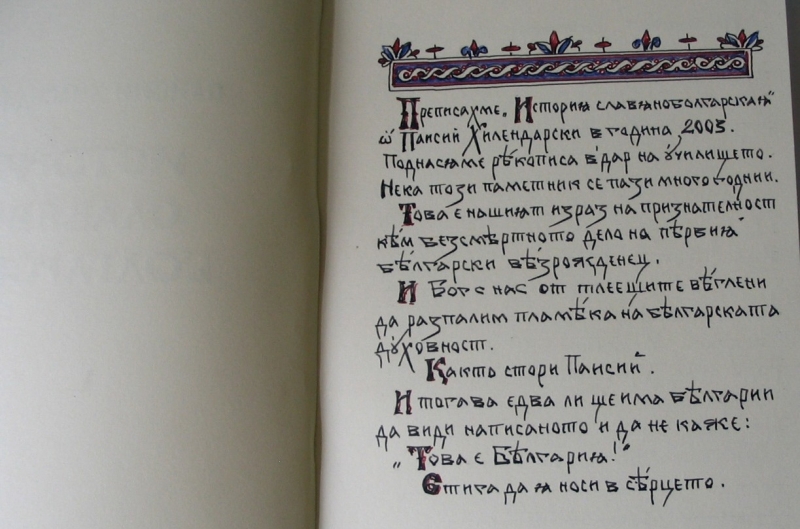 Преписахме „История славяноболгарская"
ѿ Паисий Хилендарски в година 2003.
Поднасяме рѣкописа в дар на училището.
Нека този паметник се пази много години.
Това е нашият израз на признателност
кѣм безсмѣртното дело на пѣрвия
бѣлгарски вѣзрожденец.
И Бог с нас от тлеещите вѣглени
да разпалим пламѣка на бѣлгарската
духовност.
Както стори Паисий.
И тогава едва ли ще има бѣлгарин
да види написаното и да не каже:
„Това е Бѣлгария!"
Стига да я носи в сѣрцето.